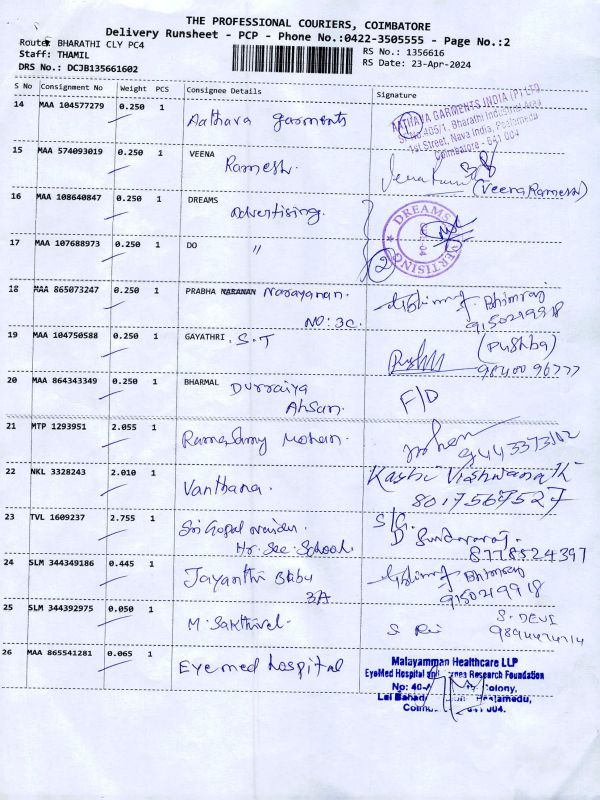 THE PROFESSIONAL COURIERS, COIMBATORE
Delivery Runsheet - PCP - Phone No.:0422-3505555 - Page No.:2
Route: BHARATHI CLY PC4
Staff: THAMIL
DRS No.: DCJB135661602
RS No.: 1356616
RS Date: 23-Apr-2024
S No Consignment No Weight PCS Consignee Details Signature
14 MAA 104577279 0.250 1 Aathava garments
AATHAVA GARMENTS INDIA (P) LTD
405/1, Bharathi
1st Street, Nava India, Peelamedu
Coimbatore - 641 004
15 MAA 574093019 0.250 1 VEENA
Ramesh.
(Veena Ramesh)
16 MAA 108640847 0.250 1 DREAMS
Advertising.
DREAMS ADVERTISING
17 MAA 107688973 0.250 1 DO "
2
18 MAA 865073247 0.250 1 PRABHA NARANAN Narayanan.
NO: 3C.
Bhimraj
9150219918
19 MAA 104750588 0.250 1 GAYATHRI . S.T
(Pushba)
9840096777
20 MAA 864343349 0.250 1 BHARMAL Durraiya
Ahsan.
F/D
21 MTP 1293951 2.055 1 Ramasamy Mohan.
mohan
9443373102
22 NKL 3328243 2.010 1 Vanthana.
Kashi Vishwanath
8017567527
23 TVL 1609237 2.755 1 Sri Gopal
Hr. Sec. School.
S/G.
D Sundararaj.
8778524397
24 SLM 344349186 0.445 1 Jayanthi Babu
3A
Bhimraj
9150219918
25 SLM 344392975 0.050 1 M. Sakthivel.
S. DEVI
9894474714
26 MAA 865541281 0.065 1 Eyemed hospital
Malayamman Healthcare LLP
EyeMed Hospital and Research Foundation
No: 40 Colony,
Lal Bahadur Peelamedu,
Coimbatore 641 004.